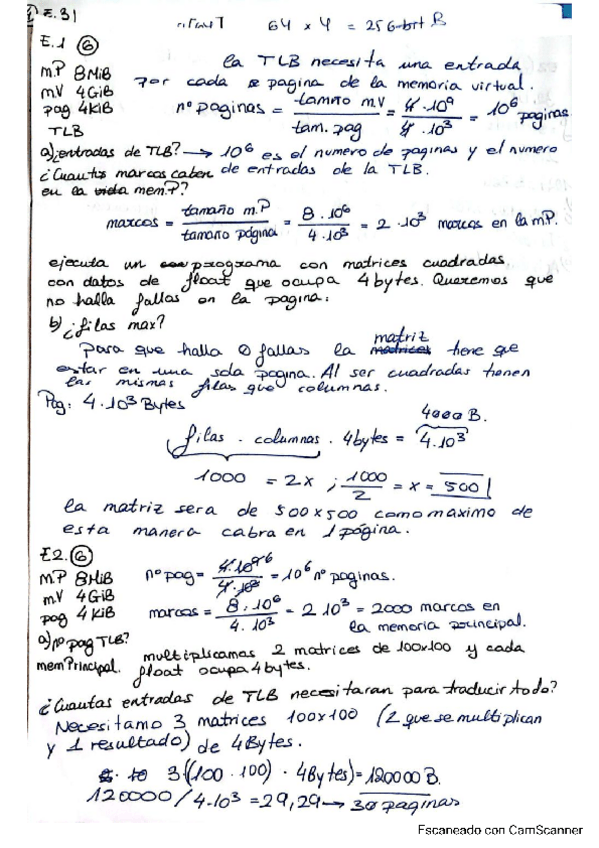 E.31 64 x 4 = 256 B
E.1 ⑥
m.P 8MiB
mV 4GiB
pag 4KiB
TLB
la TLB necesita una entrada
por cada pagina de la memoria virtual.
nº paginas = tamño m.V / tam. pag = 4·10⁹ / 4·10³ = 10⁶ paginas
a)¿entradas de TLB? → 10⁶ es el numero de paginas y el numero
de entradas de la TLB.
¿Cuantos marcos caben
en la vida mem.P?
marcos = tamaño m.P / tamaño página = 8.10⁶ / 4.10³ = 2·10³ marcos en la mP.
ejecuta un programa con matrices cuadradas
con datos de float que ocupa 4 bytes. Queremos que
no halla fallas en la pagina:
b)¿filas max?
Para que halla 0 fallas la matriz tiene que
estar en una sola pagina. Al ser cuadradas tienen
las mismas filas que columnas.
Pag: 4.10³ Bytes
4000 B.
filas . columnas . 4bytes = 4.10³
1000 = 2x ; 1000/2 = x = 500
la matriz sera de 500x500 como maximo de
esta manera cabra en 1 página.
E2. ⑥
m.P 8MiB
m.V 4GiB
pag 4KiB
nº pag = 4.10⁹ / 4.10³ = 10⁶ nº paginas.
marcos = 8.10⁶ / 4.10³ = 2 10³ = 2000 marcos en
la memoria principal.
a)nº pag TLB?
mem Principal.
multiplicamos 2 matrices de 100x100 y cada
float ocupa 4 bytes.
¿Cuantas entradas de TLB necesitaran para traducir todo?
Necesitamo 3 matrices 100x100 (2 que se multiplican
y 1 resultado) de 4Bytes.
3((100 . 100) . 4Bytes) = 120000 B.
120000 / 4.10³ = 29,29 → 30 paginas
Escaneado con CamScanner